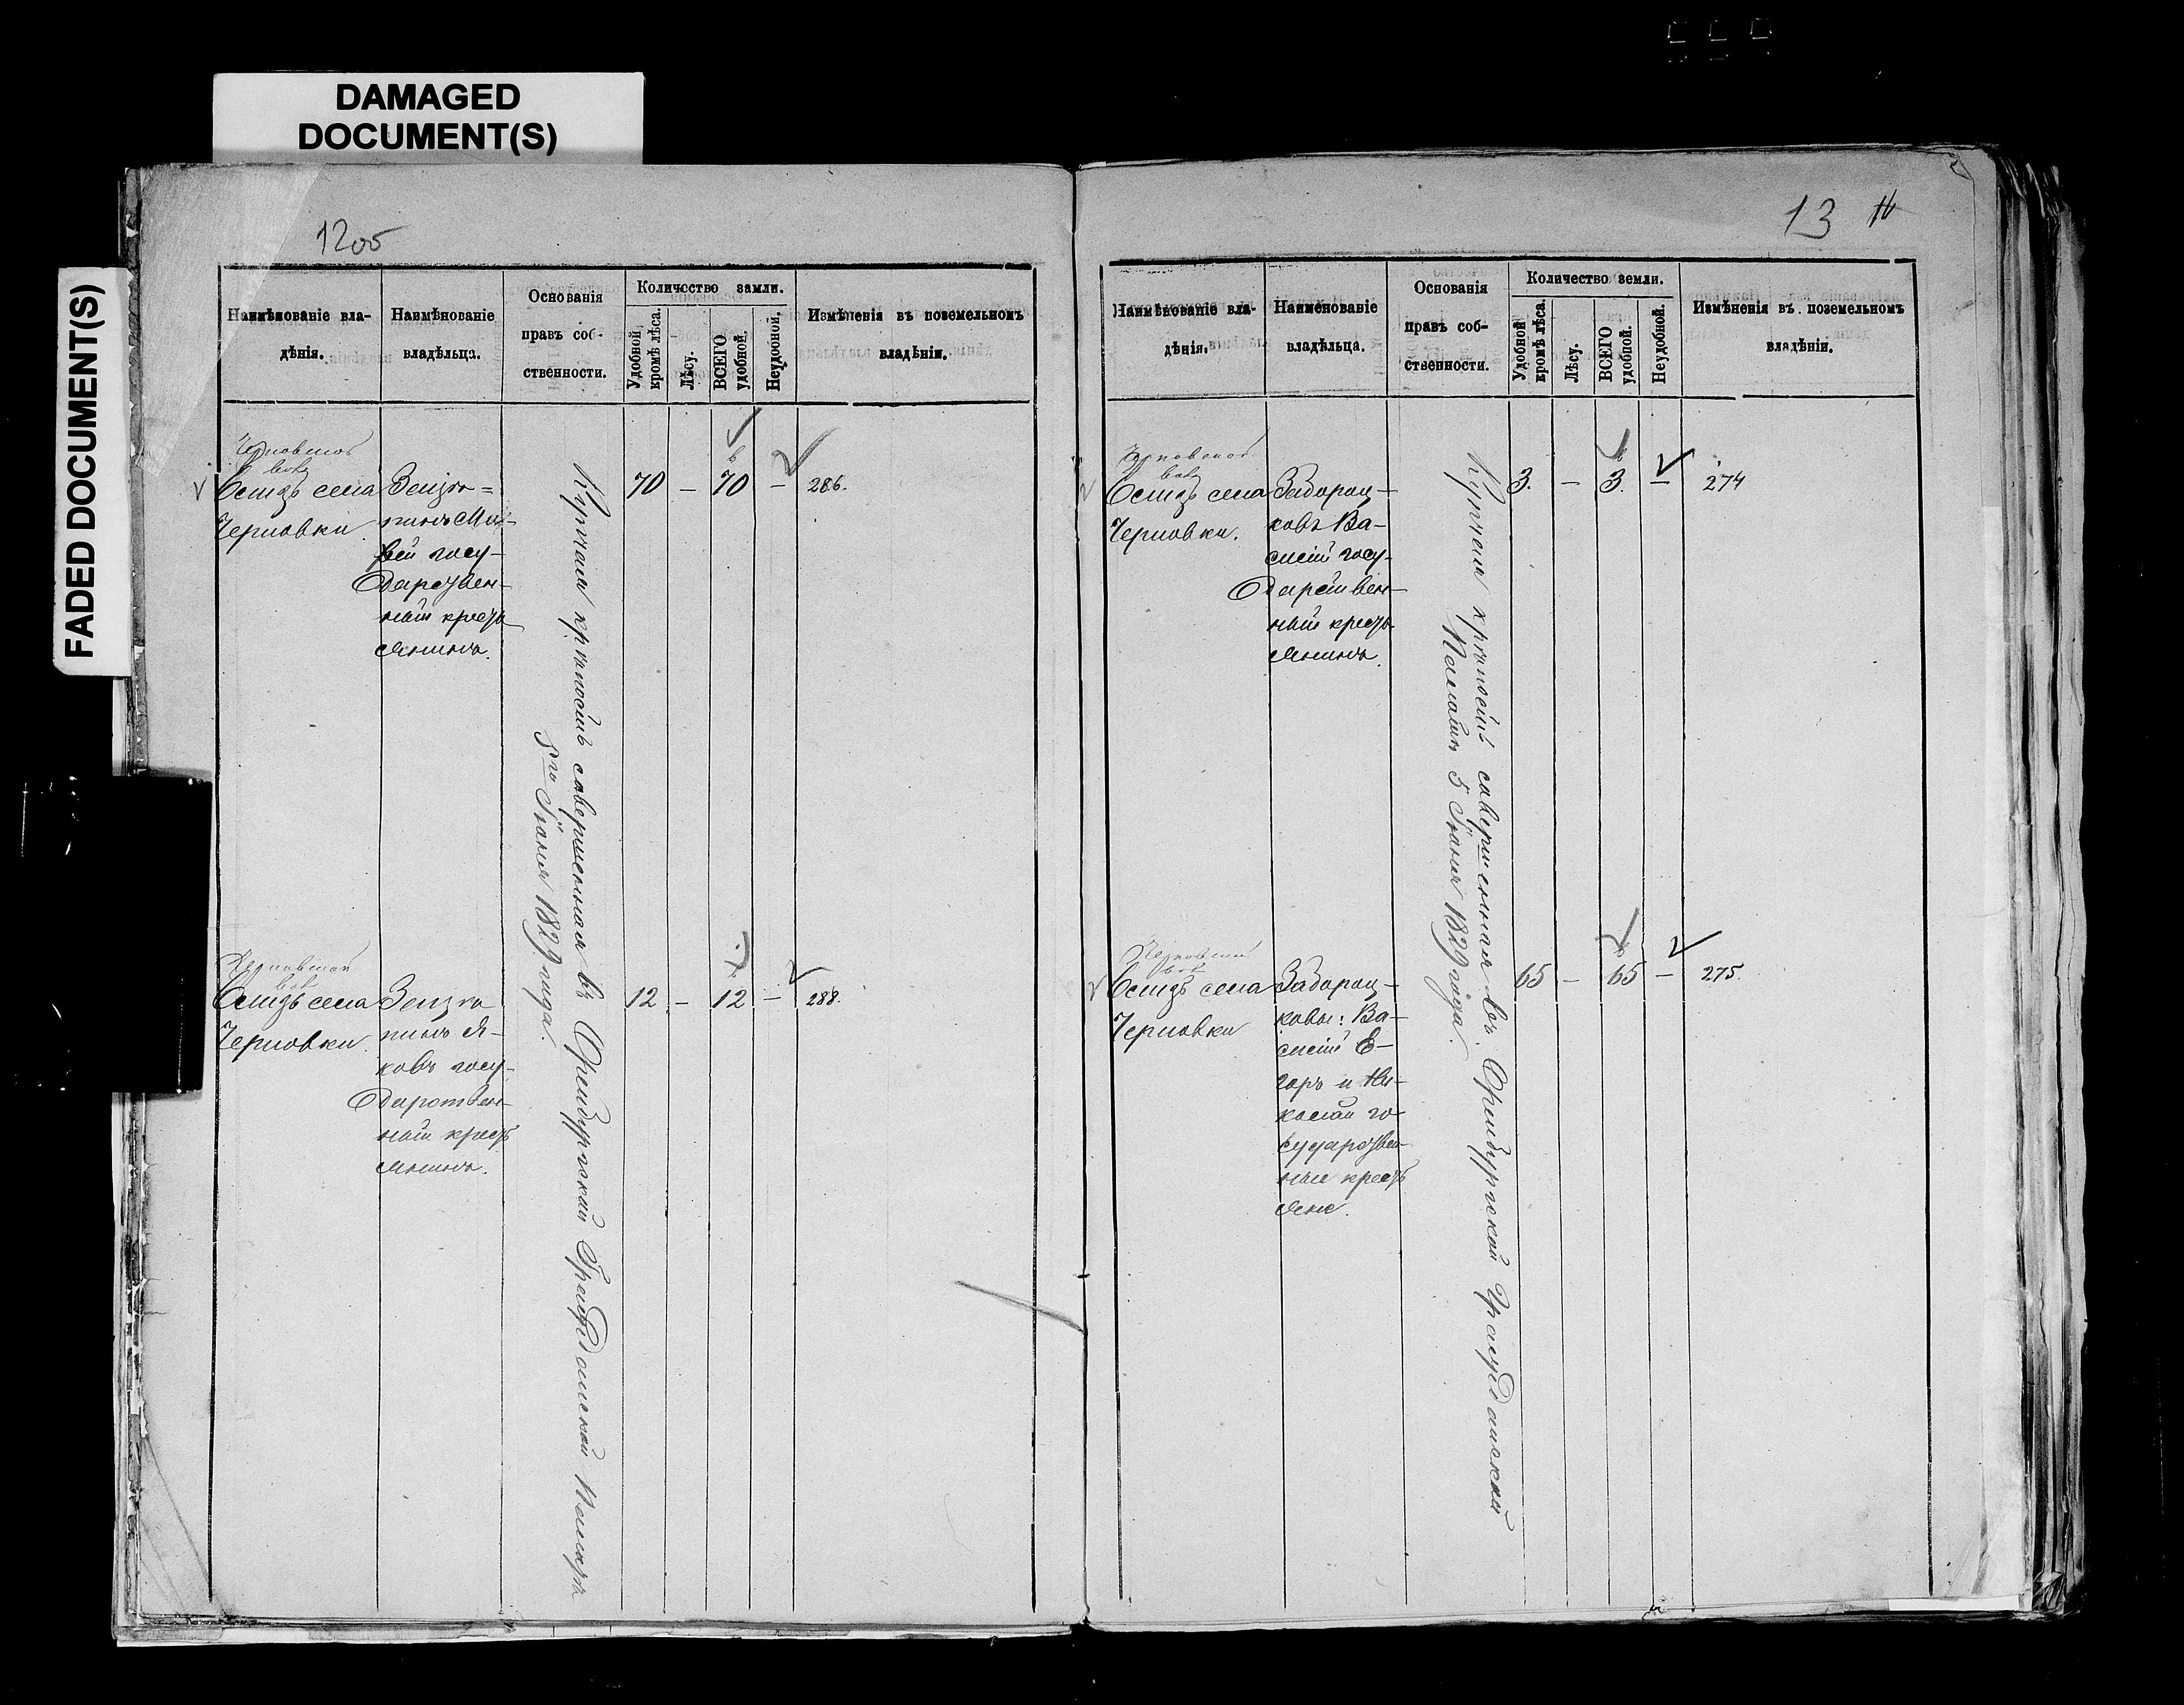 DAMAGED
DOCUMENT(S)
FADED DOCUMENT(S)
12об
Наимѣнованіе вла-
дѣнія.
Наимѣнованіе
владѣльца.
Основанія
правъ соб-
ственности.
Количество земли.
Удобной
кромѣ лѣса.
Лѣсу.
ВСЕГО
удобной.
Неудобной.
Измѣненія въ поземельномъ
владѣніи.
села
Черновки
госу-
дарствен-
ный кресть
янинъ.
Купчая крѣпость савершенная въ Оренбургской Гражданской Палатѣ
5го Іюня 1829 года.
70 — 70 — 286.
села
Черновки
Я-
ковъ госу-
дарствен-
ный кресть
янинъ.
12 — 12 — 288.
13
Наимѣнованіе вла-
дѣнія.
Наименованіе
владѣльца.
Основанія
правъ соб-
ственности.
Количество земли.
Удобной
кромѣ лѣса.
Лѣсу.
ВСЕГО
удобной.
Неудобной.
Измѣненія въ поземельномъ
владѣніи.
села
Черновки.
Ва-
силій госу-
дарствен-
ный кресть
янинъ.
Купчая крѣпость савершенная въ Оренбургской Гражданской
Палатѣ 5 Іюня 1829 года.
3. — 3. — 274
села
Черновки
ковы: Ва-
силій Е-
горъ и Ни-
колай го-
сударствен-
ные кресть
яне.
65 — 65 — 275.